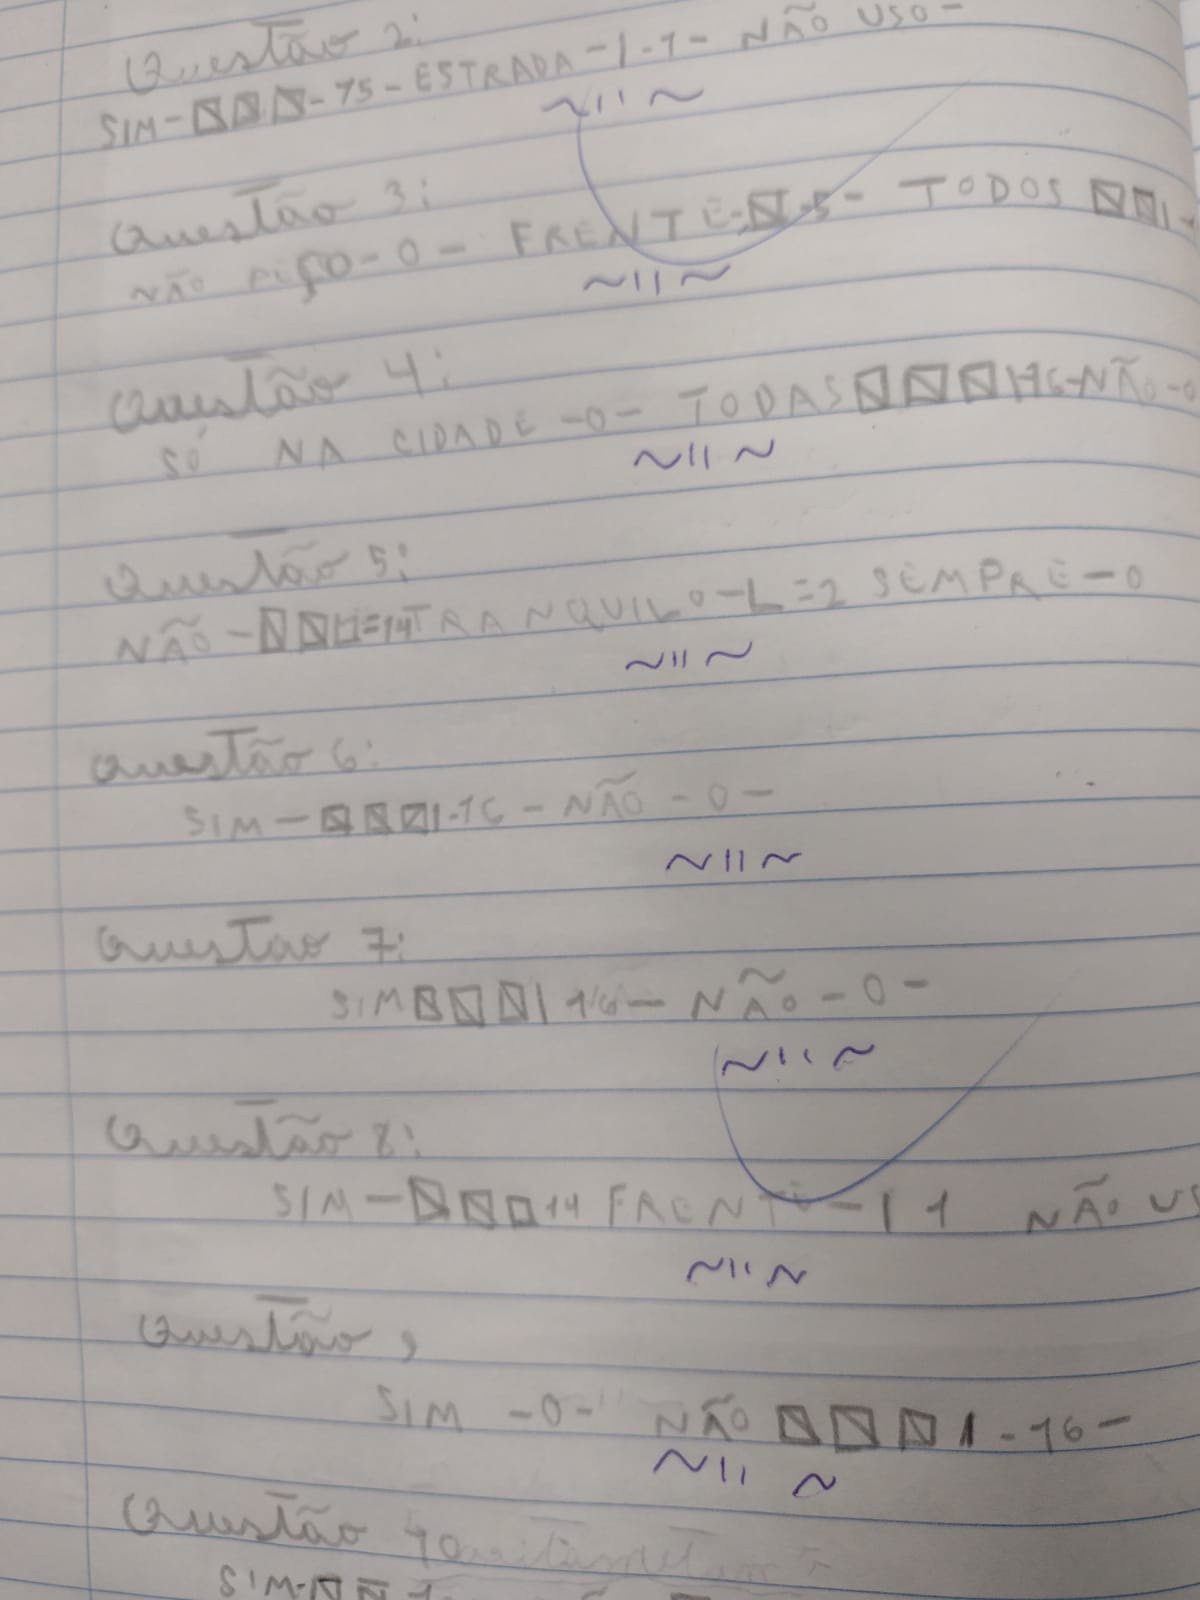 Questão 2:
SIM - 75 - ESTRADA - 1 - 1 - NÃO USO -
Questão 3:
NÃO - 0 - FRENTE - 5 - TODOS
Questão 4:
SÓ NA CIDADE - 0 - TODAS 16 - NÃO - 0
Questão 5:
NÃO - = 14 TRANQUILO - L = 2 SEMPRE - 0
Questão 6:
SIM - 1 - 16 - NÃO - 0 -
Questao 7:
SIM 1 16 - NÃO - 0 -
Questão 8:
SIM - 14 FRENTE - 1 1 NÃO US
Questão 9
SIM - 0 - NÃO 1 - 16 -
Questão 10
SIM -